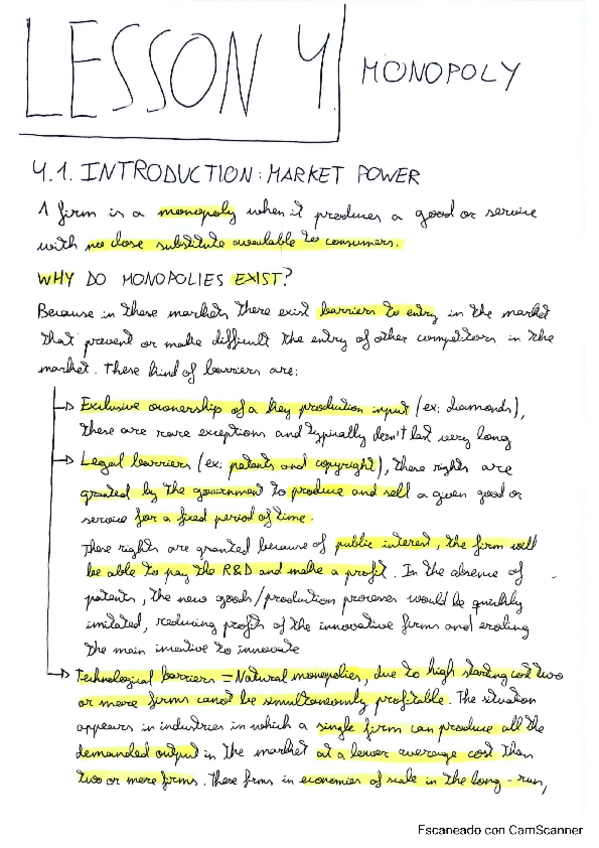 LESSON 4 MONOPOLY
4.1. INTRODUCTION: MARKET POWER
A firm is a monopoly when it produces a good or service
with no close substitute available to consumers.
WHY DO MONOPOLIES EXIST?
Because in these markets there exist barriers to entry in the market
that prevent or make difficult the entry of other competitors in the
market. These kind of barriers are:
Exclusive ownership of a key production input (ex: diamonds),
these are rare exceptions and typically don't last very long
Legal barriers (ex: patents and copyright), these rights are
granted by the government to produce and sell a given good or
service for a fixed period of time.
These rights are granted because of public interest, the firm will
be able to pay the R&D and make a profit. In the absence of
patents, the new goods/production processes would be quickly
imitated, reducing profits of the innovative firms and eroding
the main incentive to innovate
Technological barriers = Natural monopolies, due to high starting cost two
or more firms canot be simultaneously profitable. The situation
appears in industries in which a single firm can produce all the
demanded output in the market at a lower average cost than
two or more firms. These firms in economies of scale in the long-run,
Escaneado con CamScanner